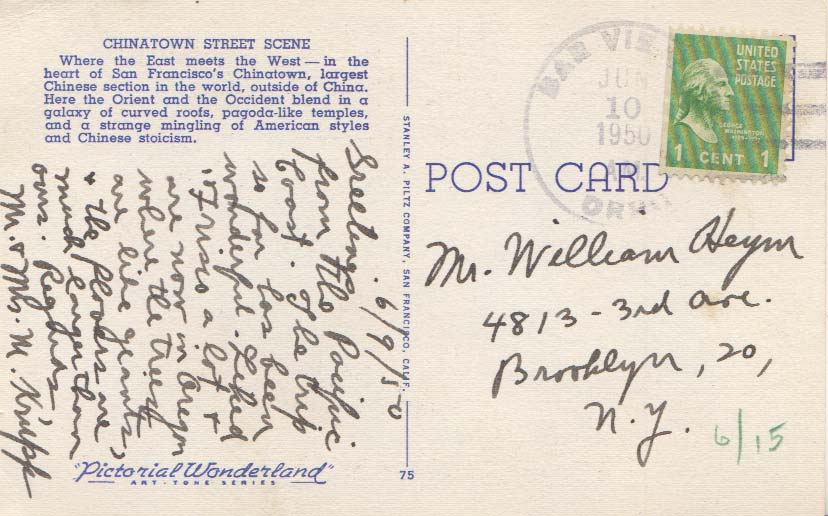 CHINATOWN STREET SCENE
Where the East meets the West — in the
heart of San Francisco's Chinatown, largest
Chinese section in the world, outside of China.
Here the Orient and the Occident blend in a
galaxy of curved roofs, pagoda-like temples,
and a strange mingling of American styles
and Chinese stoicism.
6/9/50
Greetings
from the Pacific
Coast. The trip
so far has been
wonderful. Liked
'Frisco a lot &
are now in Oregon
where the trees
are like giants,
& the flowers are
much larger than
ours. Regards,
Mr. & Mrs. M.
"Pictorial Wonderland"
ART-TONE SERIES
STANLEY A. PILTZ COMPANY, SAN FRANCISCO, CALIF.
75
POST CARD
BAR VIE
JUN
10
1950
AM
UNITED
STATES
POSTAGE
GEORGE
WASHINGTON
1 CENT 1
Mr. William Heym
4813-3rd Ave.
Brooklyn, 20,
N.Y.
6/15